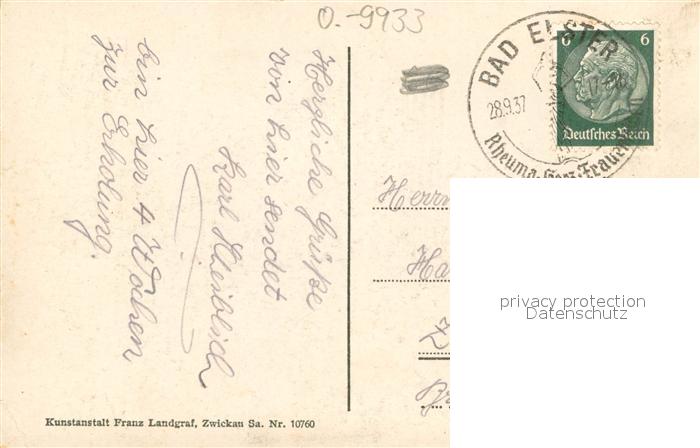 O.-9933
BAD ELSTER
28.9.37
Rheuma, Herz, Frauen
6 6
Deutsches Reich
Herzliche Grüße
von hier sendet
Karl
bin hier 4 Wochen
zur Erholung.
Herrn
Ha
Kunstanstalt Franz Landgraf, Zwickau Sa. Nr. 10760
privacy protection
Datenschutz